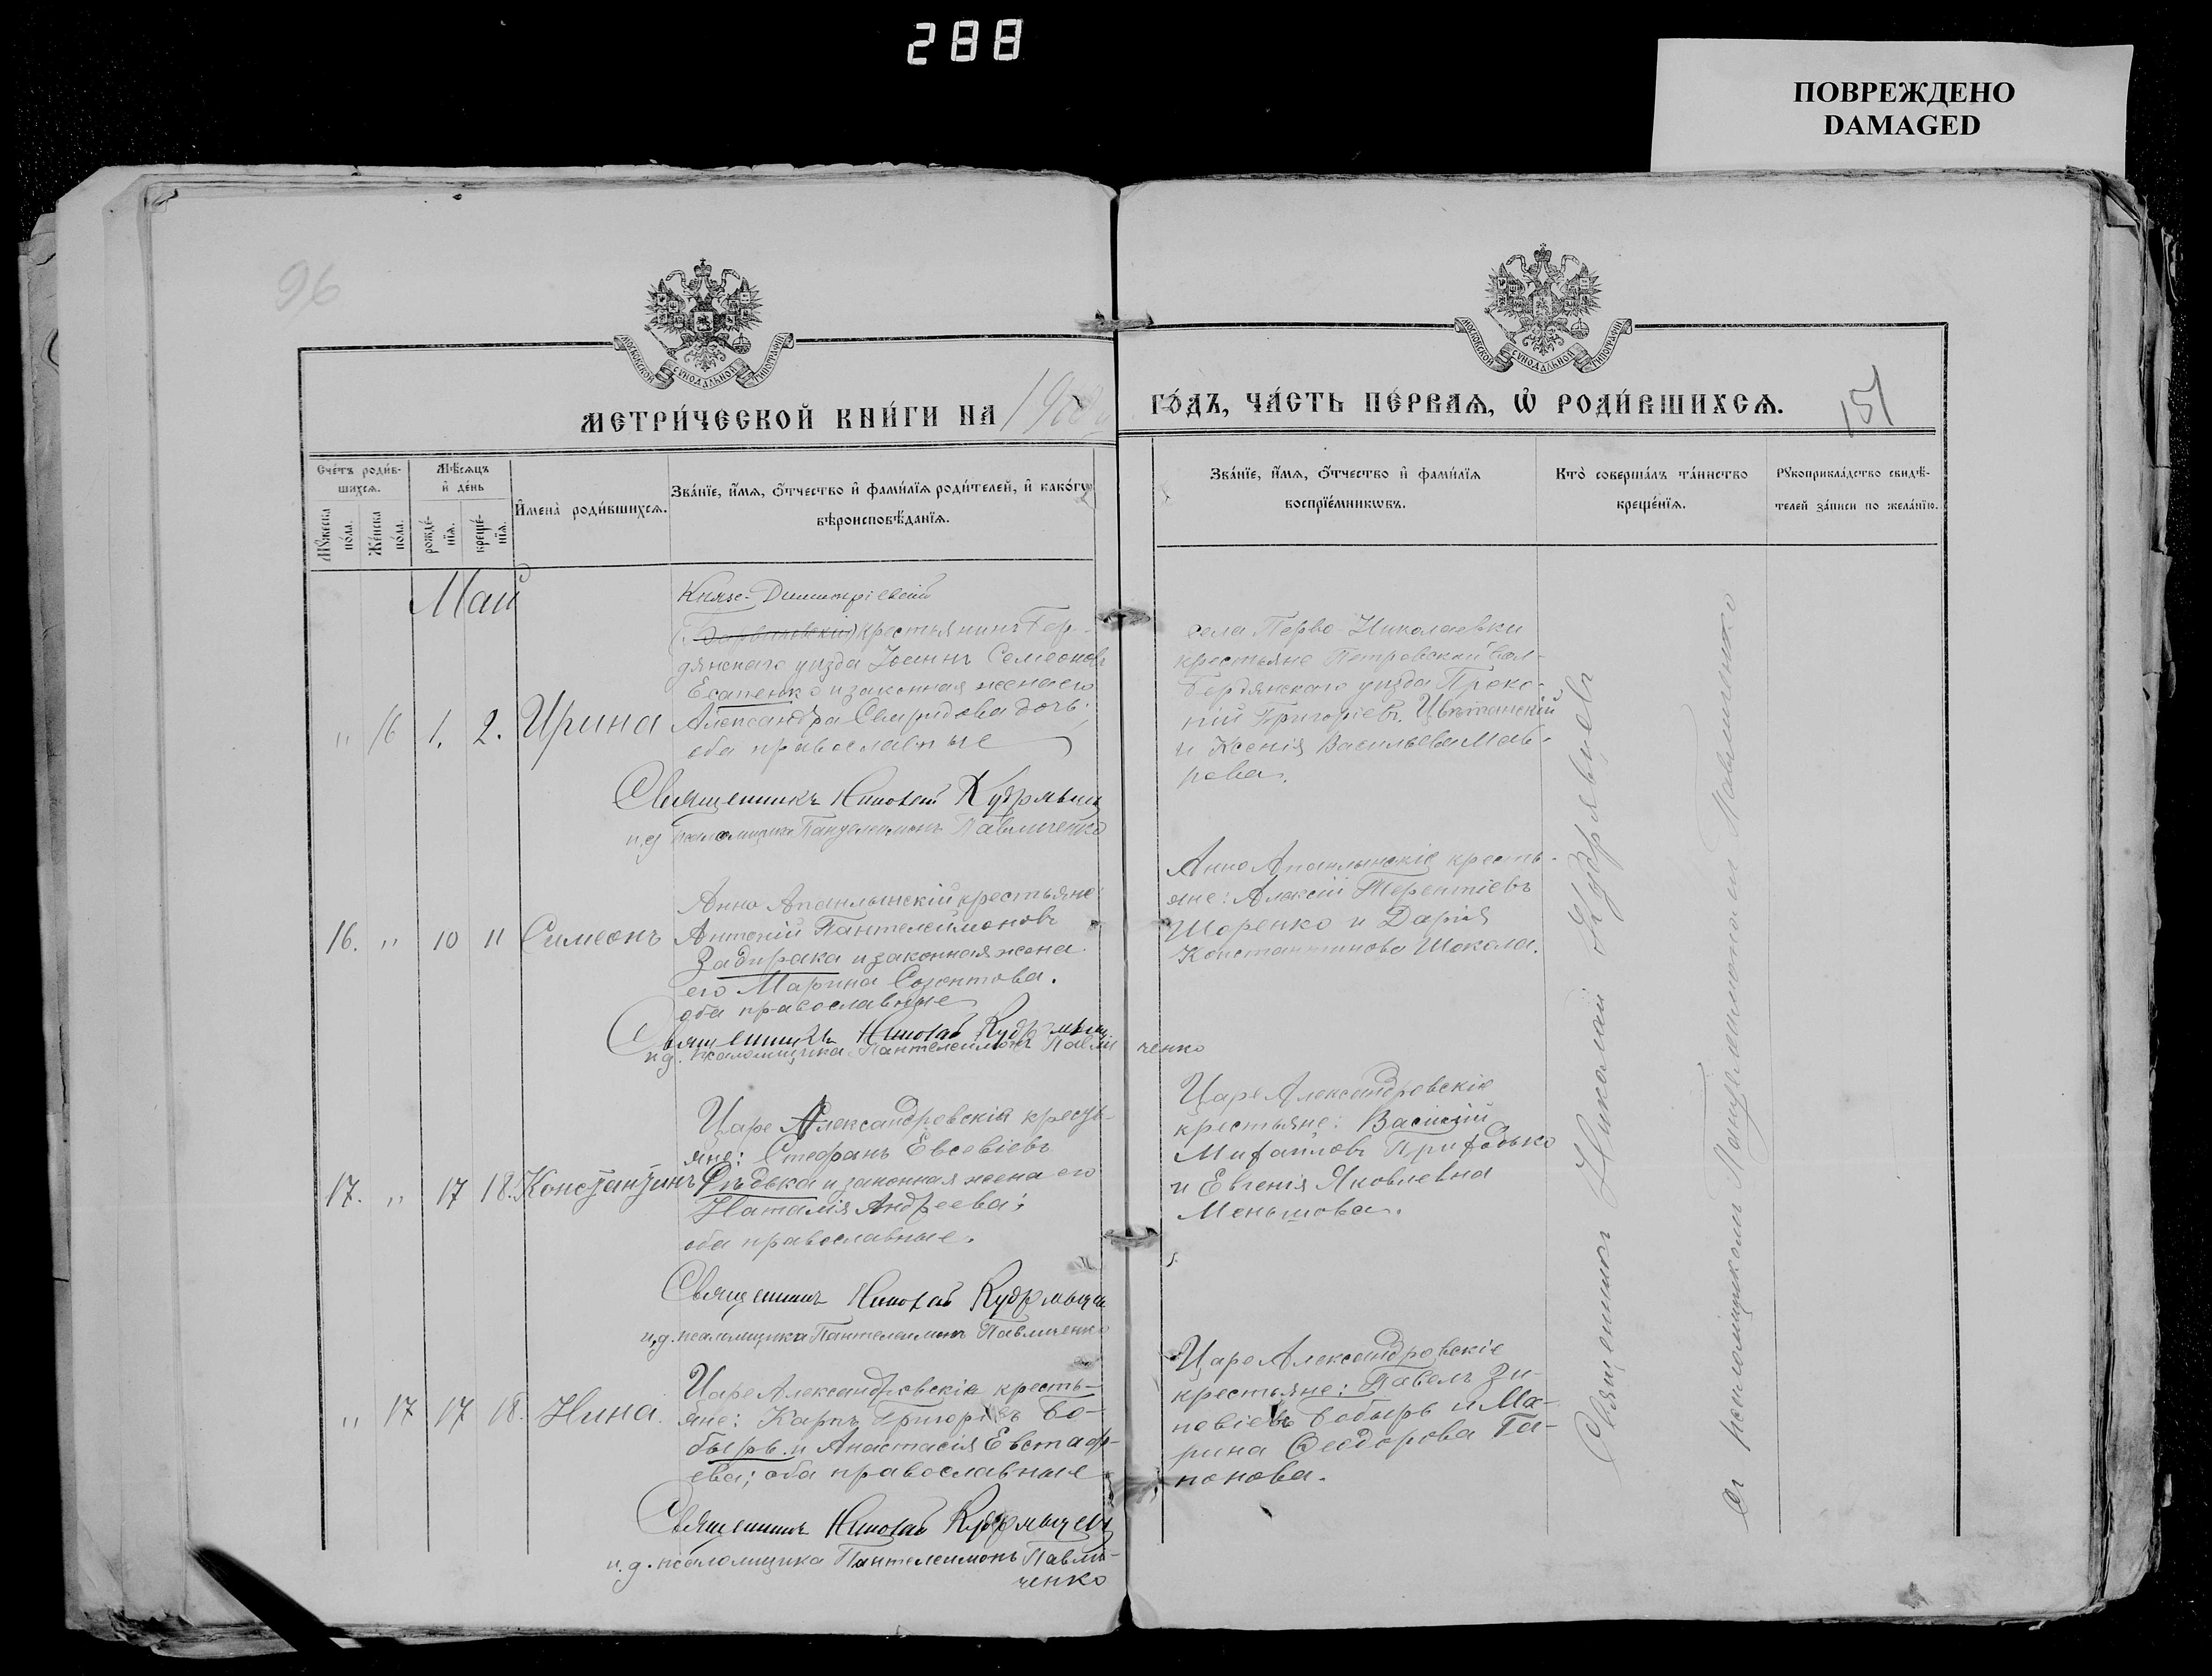 288
ПОВРЕЖДЕНО
DAMAGED
96
МОСКОВСКОЙ СѴНОДАЛЬНОЙ ТИПОГРАФІИ
МОСКОВСКОЙ СѴНОДАЛЬНОЙ ТИПОГРАФІИ
МЕТРИ́ЧЕСКОЙ КНИ́ГИ НА 1908
ГО́ДЪ, ЧА́СТЬ ПЕ́РВАЯ, Ѡ РОДИ́ВШИХСЯ.
151
Сче́тъ роди́в-
шихся.
Мѣ́сяцъ
и҆ де́нь
Мꙋ́жеска по́ла.
Же́нска по́ла.
рожде́-
нїя.
креще́-
нїя.
И҆мена̀ роди́вшихся.
Зва́нїе, и҆́мя, ѻ҆́тчество и҆ фами́лїя роди́телей, и҆ како́гѡ
вѣроисповѣ́данїя.
Зва́нїе, и҆́мя, ѻ҆́тчество и҆ фами́лїя
воспрїе́мникѡвъ.
Кто̀ соверша́лъ та́инство
креще́нїя.
Рꙋкоприкла́дство свидѣ́-
телей за́писи по жела́нїю.
Май
" 16 1. 2. Ирина
Княже-Димитріевскій
крестьянинъ Бер-
дянскаго уѣзда Іоаннъ Семеоновъ
Есапенко и законная жена его
Александра Свиридова дочь;
оба православные
Священникъ Николай Кудрявцевъ
и.д. псаломщика Пантелеимонъ Павличенко
села Перво-Николаевки
крестьяне Петровской вол-
Бердянскаго уѣзда Проко-
пій Григоріевъ
и Ксенія Васильева Мав-
рова.
16. " 10 11 Симеонъ
Анно Апанлынскій крестьяне:
Антоній Пантелеимоновъ
Задирака и законная жена
его Марина Созонтова.
оба православные
Священникъ Николай Кудрявцевъ
и.д. псаломщика Пантелеимонъ Павличенко
Анно Апанлынскіе кресть-
яне: Алексій Терентіевъ
Шоренко и Дарія
Константинова Шокала.
17. " 17 18. Константинъ
Царе Александровскія кресть-
яне: Стефанъ Евсевіевъ
Рѣдька и законная жена его
Наталія Андреева;
оба православные.
Священникъ Николай Кудрявцевъ
и.д. псаломщика Пантелеимонъ Павличенко
Царе Александровскія
крестьяне: Василій
Михайловъ Приходько
и Евгенія Яковлевна
Меньшова.
" 17 17 18. Нина.
Царе Александровскіе кресть-
яне: Карпъ Григоріевъ Бо-
бырь и Анастасія Евстаф-
ева; оба православные
Священникъ Николай Кудрявцевъ
и.д. псаломщика Пантелеимонъ Павли-
ченко
Царе Александровскіе
крестьяне: Павелъ Зи-
новіевъ Бобырь и Ма-
рина Феодорова Га-
понова.
Священникъ Николай Кудрявцевъ
съ псаломщикомъ Пантелеимономъ Павличенко